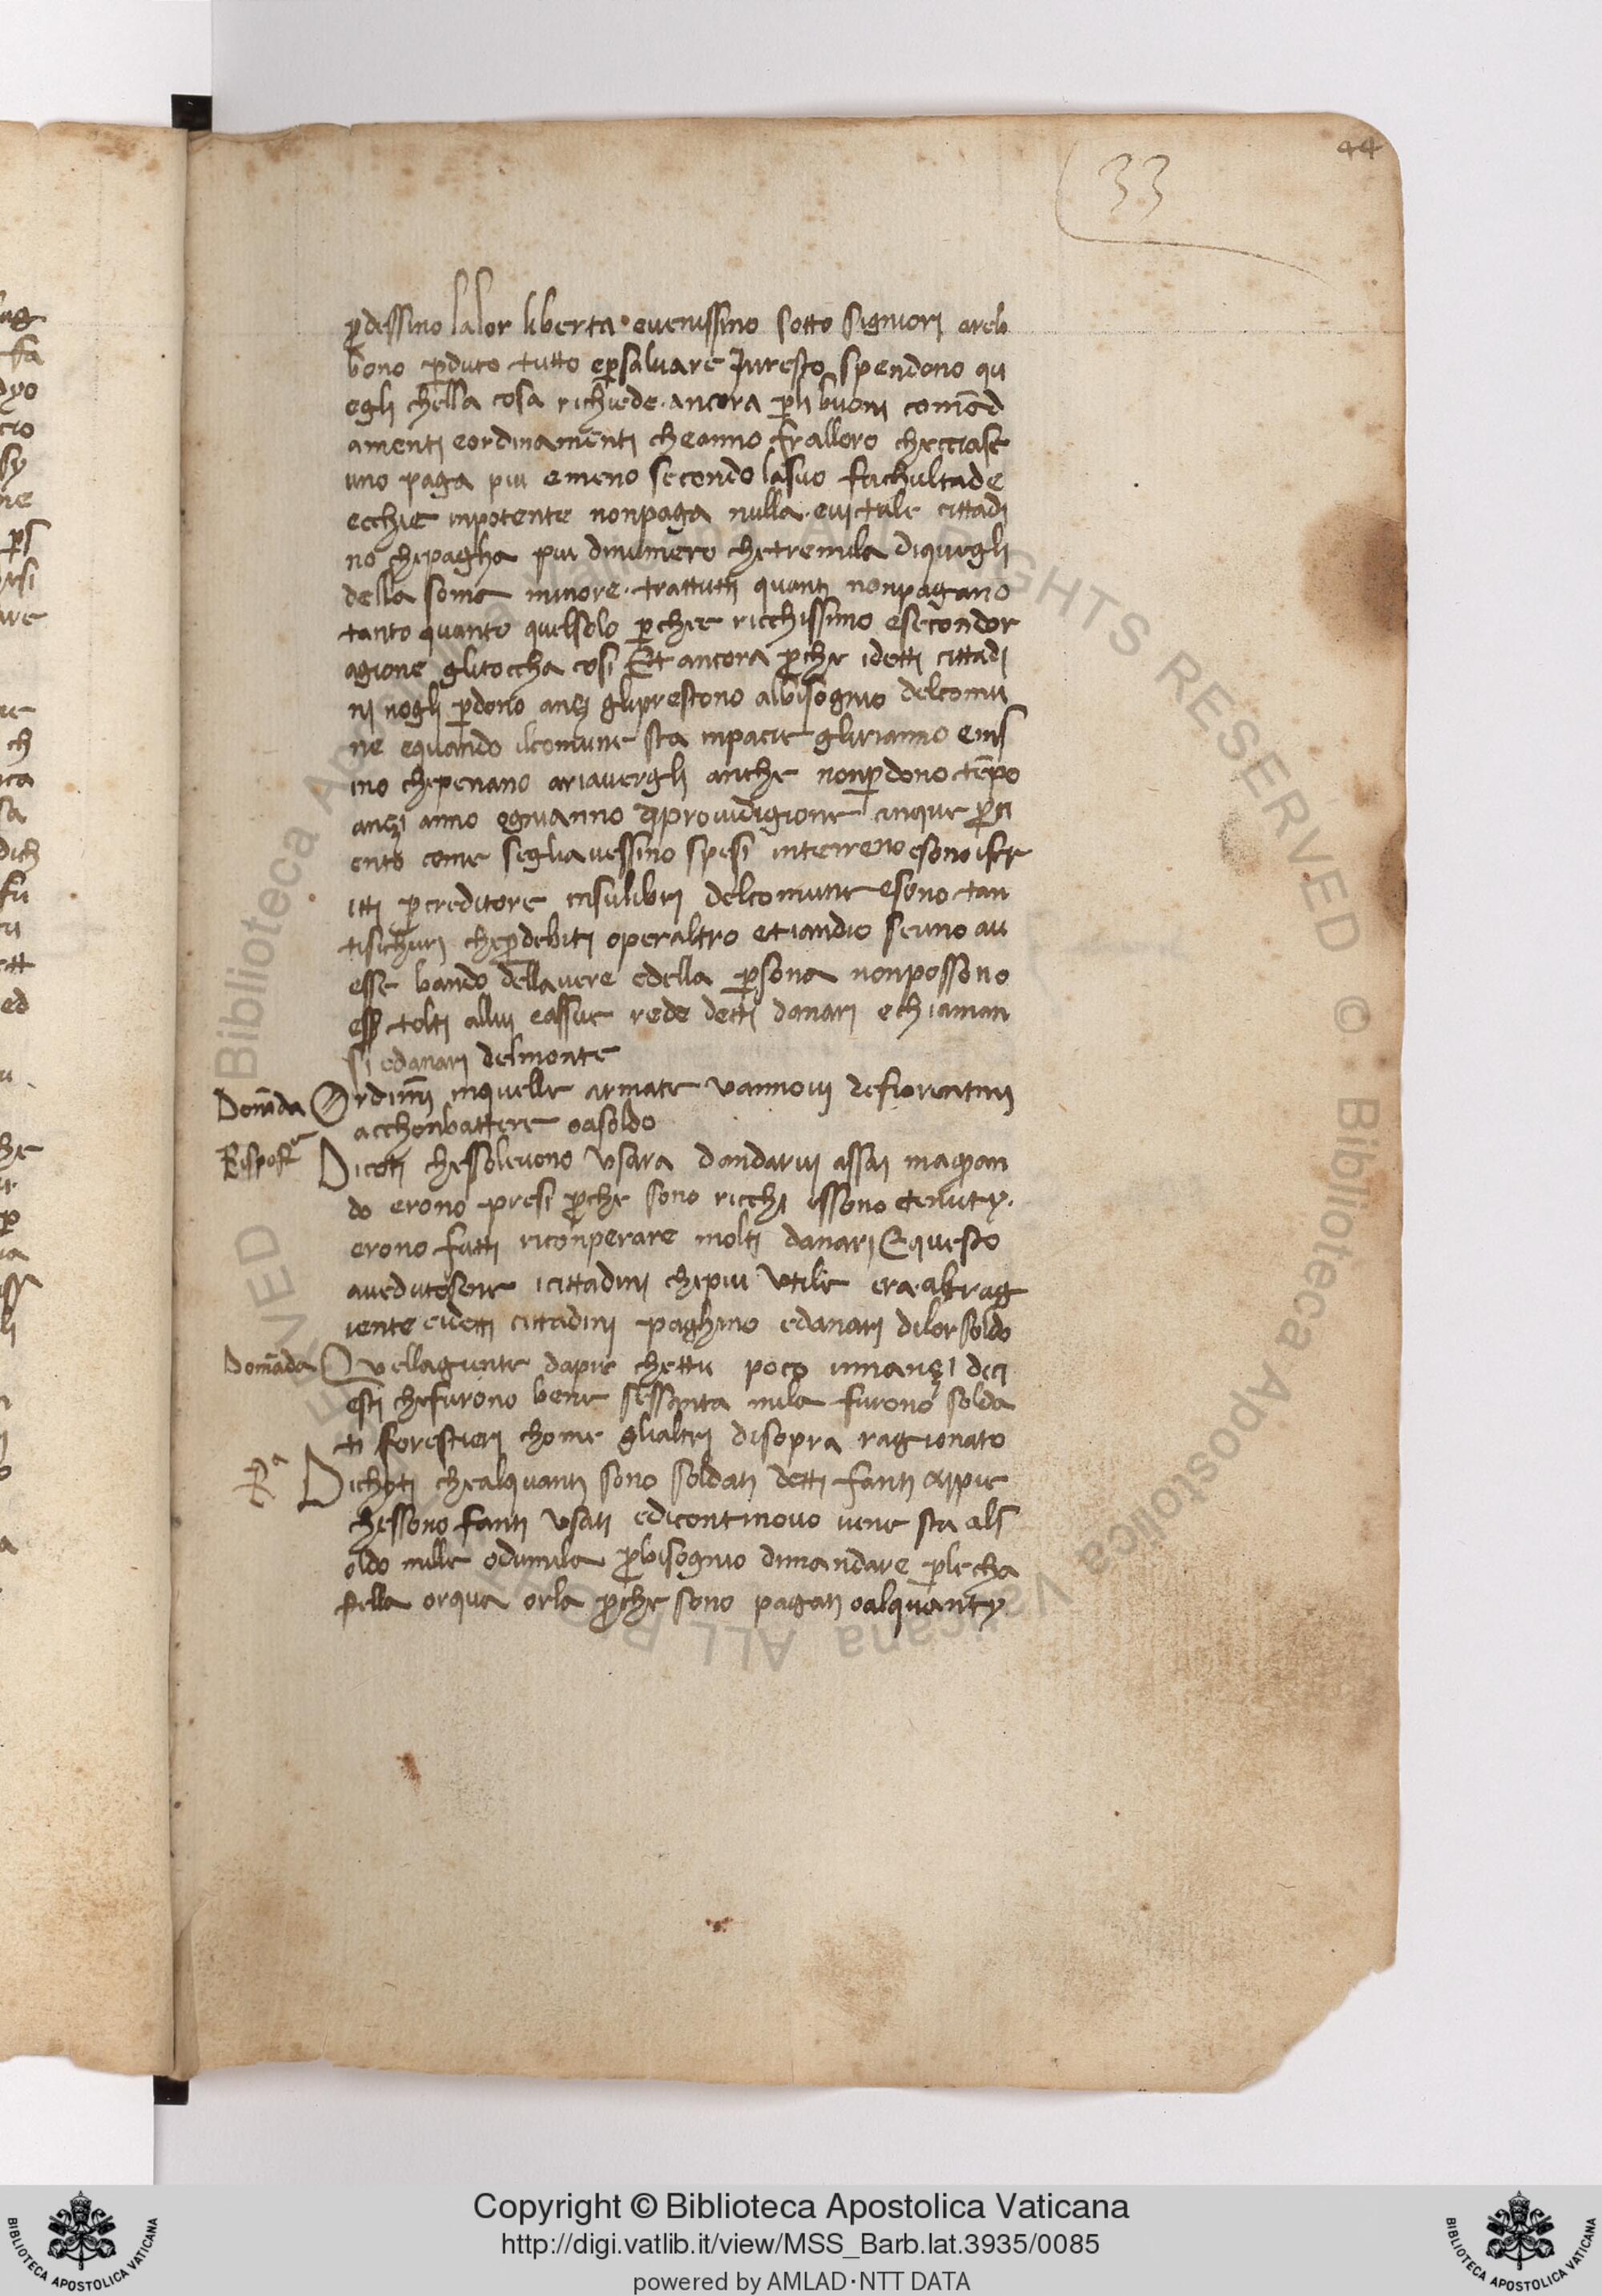 44
33
ꝑdessino lalor liberta · evenissino sotto signiori areb
bono ꝑduto tutto eꝑsalvare Jnresto spendono qu
egli chella cosa richiede · ancora ꝑli buoni comād
amenti eordinamēnti cheanno fralloro checciasc
uno paga piu emeno secondo lasuo fachultade
ecchie inpotente nonpaga nulla · evi tale cittadi
no chepagha piu dinumero chetremila diquegli
della soma minore · trattutti quanti nonpagano
tanto quanto quelsolo ꝑchee ricchissimo esecondor
agione glitoccha cosi Et ancora ꝑche idetti cittadi
ni nogli ꝑdono anzi gliprestono albisognio delcomu
ne equando ilcomune sta inpacie glirianno
ino chepenano ariavergli anche nonꝑdono tēpo
anzi anno ognianno diprovidigione cinque ꝑci
ento come seglavessino spesi interreno esono iscr
itti ꝑcreditore insulibri delcomune esono tan
tisichuri cheꝑdebiti operaltro etiandio seuno av
esse bando dellavere edella ꝑsona nonpossono
esꝑ tolti allui eassue rede detti danari echiaman
si edanari delmonte
Domāda Ordimi inquelle armate vannovi defiorentini
acchonbattere oasoldo
Risposta Dicoti chessolevono usara dandarvi assai maqan
do erono presi ꝑche sono ricchi essono tenuty ·
erono fatti riconperare molti danari Equesto
avedutosene icittadini chepiu utile era · altrag
iente eidetti cittadini paghino edanari dilor soldo
Domāda Quellagiente dapie chettu poco innanzi dici
esti chefurono bene sessanta mila furono solda
ti forestieri chome glialtri disopra ragionato
Rᵃ Dichoti chealquanti sono soldati detti fanti appie
chessono fanti usati edicontinovo vene sta als
oldo mille odumila ꝑbisognio dimandare ꝑlecha
stella orqua orla ꝑche sono pagati oalquanty
Copyright © Biblioteca Apostolica Vaticana
http://digi.vatlib.it/view/MSS_Barb.lat.3935/0085
powered by AMLAD·NTT DATA
BIBLIOTECA APOSTOLICA VATICANA
BIBLIOTECA APOSTOLICA VATICANA